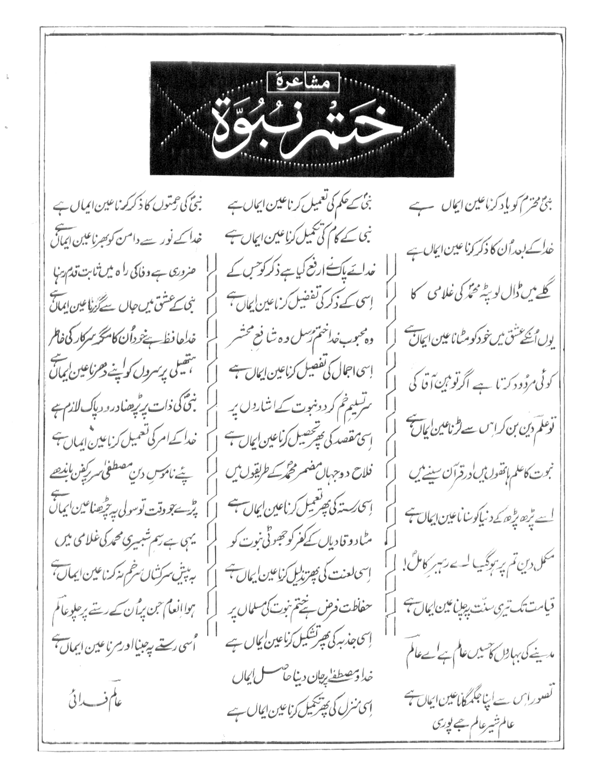 مشاعرہ
ختم نبوۃ
نبیؐ محترم کو یاد کرنا عین ایماں ہے
خدا کے بعد اُن کا ذکر کرنا عین ایماں ہے
گلے میں ڈال لو پٹہ محمدؐ کی غلامی کا
یوں اُنکے عشق میں خود کو مٹانا عین ایماں ہے
کوئی مردود کرتا ہے اگر توہین آقا کی
تو علم دین بن کر اس سے لڑنا عین ایماں ہے
نبوت کا علم ہاتھوں میں اور قرآن سینے میں
اسے پڑھ پڑھ کے دنیا کو سنانا عین ایماں ہے
مکمل دین تم پر ہو گیا اے رہبرِ کامل!
قیامت تک تیری سنت پہ چلنا عین ایماں ہے
مدینے کی بہاروں کا حسیں عالم ہے اے عالمؔ
تصور اس سے اپنا جگمگانا عین ایماں ہے
عالم شیر عالم جے پوری
نبیؐ کے حکم کی تعمیل کرنا عین ایماں ہے
نبی کے کام کی تکمیل کرنا عین ایماں ہے
خدائے پاک نے ارفع کیا ہے ذکر کو جس کے
اسی کے ذکر کی تفضیل کرنا عین ایماں ہے
وہ محبوب خدا ختم رسل وہ شافع محشر
اسی اجمال کی تفصیل کرنا عین ایماں ہے
سر تسلیم خم کر دو نبوت کے اشاروں پر
اسی مقصد کی پھر تحصیل کرنا عین ایماں ہے
فلاح دو جہاں مضمر محمدؐ کے طریقوں میں
اسی رستہ کی پھر تعمیل کرنا عین ایماں ہے
مٹا دو قادیاں کے کفر کو جھوٹی نبوت کو
اسی لعنت کی پھر تذلیل کرنا عین ایماں ہے
حفاظت فرض ہے ختم نبوت کی مسلماں پر
اسی جذبہ کی پھر تشکیل کرنا عین ایماں ہے
خدا و مصطفےٰؐ پر جان دینا حاصل ایماں
اسی منزل کی پھر تکمیل کرنا عین ایماں ہے
نبیؐ کی رحمتوں کا ذکر کرنا عین ایماں ہے
خدا کے نور سے دامن کو بھرنا عین ایماں ہے
ضروری ہے وفا کی راہ میں ثابت قدم رہنا
نبی کے عشق میں جاں سے گزرنا عین ایماں ہے
خدا حافظ ہے خود اُن کا مگر سرکار کی خاطر
ہتھیلی پر سروں کو اپنے دھرنا عین ایماں ہے
نبیؐ کی ذات پر پڑھنا درود پاک لازم ہے
خدا کے امر کی تعمیل کرنا عین ایماں ہے
پئے ناموسِ دینِ مصطفےٰ سر پر کفن باندھے
پڑے جو وقت تو سولی پہ چڑھنا عین ایماں ہے
یہی ہے رسم شبیری محمد کی غلامی میں
بہ پیش سرکشاں سر خم نہ کرنا عین ایماں ہے
ہوا انعام جن پر اُن کے رستے پر چلو عالمؔ
اُسی رستے پہ جینا اور مرنا عین ایماں ہے
عالم فدائی